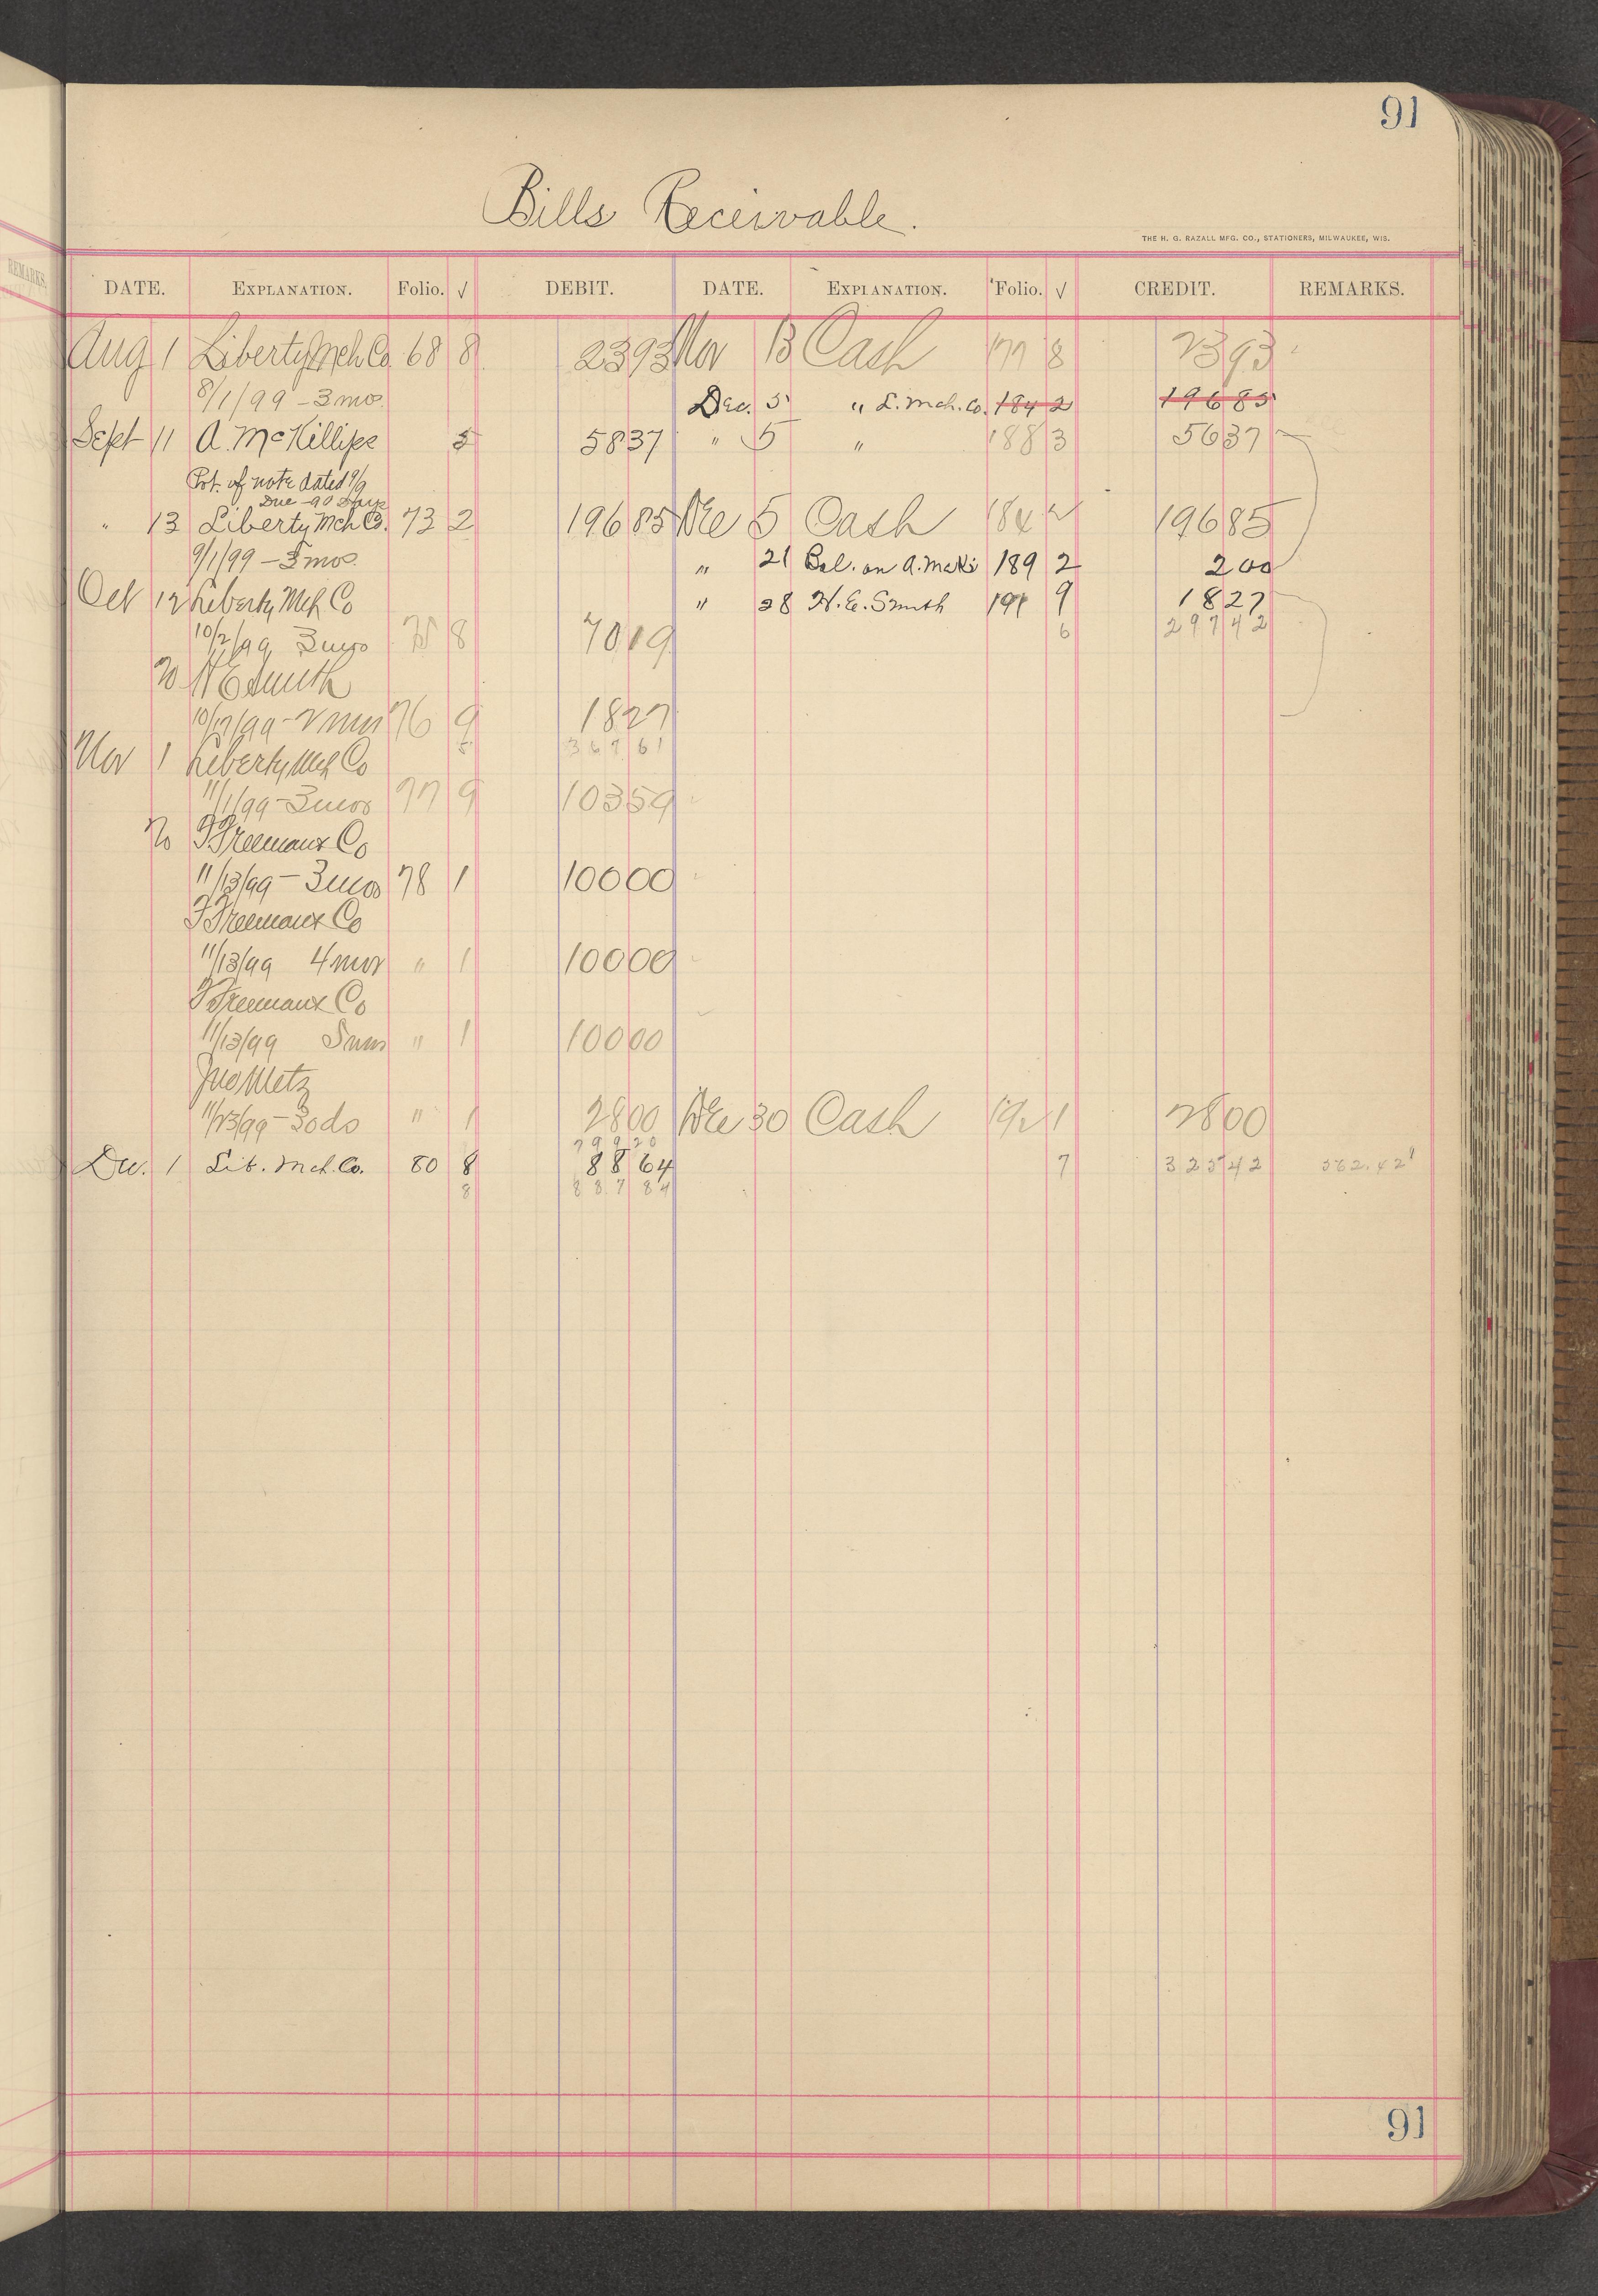 91
Bills Receivable.
THE H. G. RAZALL MFG. CO., STATIONERS, MILWAUKEE, WIS.
REMARKS.
DATE. EXPLANATION. Folio. √ DEBIT. DATE. EXPLANATION. Folio. √ CREDIT. REMARKS.
Aug 1 Liberty Mch Co 68 8 2393 Nov 13 Cash 177 8 2393
8/1/99 - 3 mos. Dec. 5 " L. Mch. Co. 184 2 19685
Sept 11 A. McKillips 5 5837 " 5 " 188 3 5637
Pst. of note dated 9/9
Due 90 Days
" 13 Liberty Mch Co. 73 2 19685 Dec 5 Cash 184 2 19685
9/1/99 - 3 mos. " 21 Bal. on A. McKi 189 2 200
Oct 12 Liberty Mch Co " 28 H. E. Smith 191 9 1827
10/2/99 3 mos 75 8 7019 6 29742
20 H E Smith
10/17/99 - 2 mos 76 9 1827
5 36761
Nov 1 Liberty Mch Co
11/1/99 - 3 mos 77 9 10359
20 F Freeman & Co
11/13/99 - 3 mos 78 1 10000
F Freeman & Co
11/13/99 4 mos " 1 10000
F Freeman & Co
11/13/99 5 mos " 1 10000
Jno Metz
11/23/99 - 30 ds " 1 2800 Dec 30 Cash 192 1 2800
79920
Dec. 1 Lib. Mch. Co. 80 8 8864 7 32542 562.42
8 88784
91